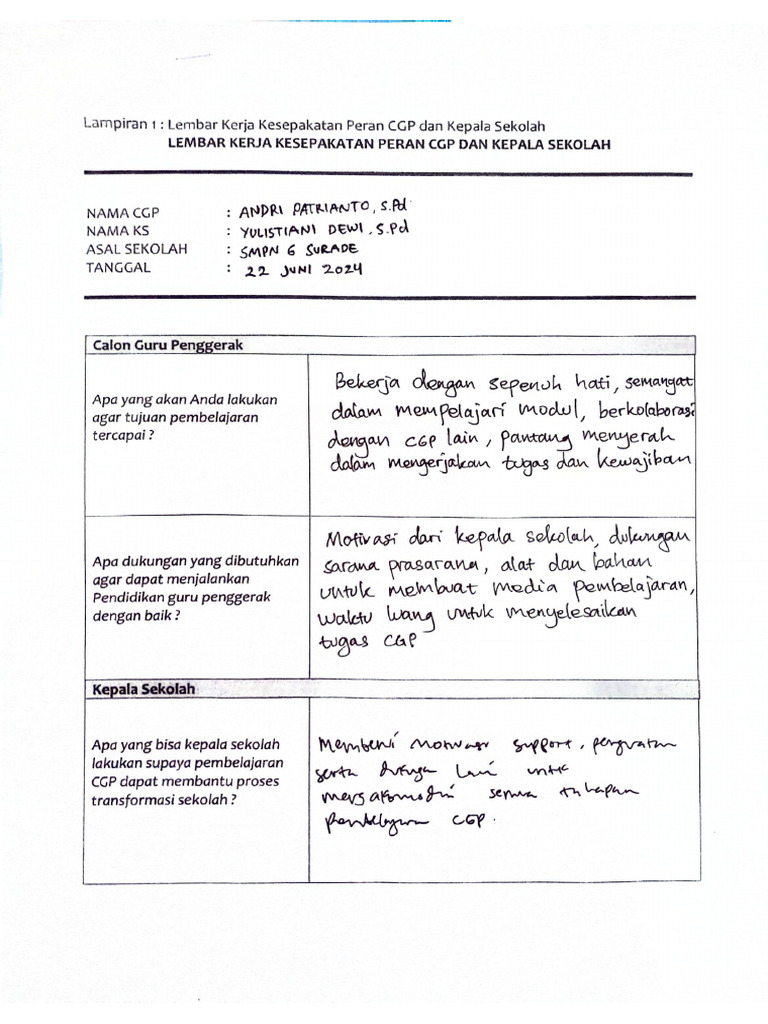 Lampiran 1 : Lembar Kerja Kesepakatan Peran CGP dan Kepala Sekolah
LEMBAR KERJA KESEPAKATAN PERAN CGP DAN KEPALA SEKOLAH
NAMA CGP : ANDRI PATRIANTO, S.Pd
NAMA KS : YULISTIANI DEWI, S.Pd
ASAL SEKOLAH : SMPN 6 SURADE
TANGGAL : 22 JUNI 2024
Calon Guru Penggerak
Apa yang akan Anda lakukan
agar tujuan pembelajaran
tercapai ?
Bekerja dengan sepenuh hati, semangat
dalam mempelajari modul, berkolaborasi
dengan CGP lain, pantang menyerah
dalam mengerjakan tugas dan kewajiban
Apa dukungan yang dibutuhkan
agar dapat menjalankan
Pendidikan guru penggerak
dengan baik ?
Motivasi dari kepala sekolah, dukungan
sarana prasarana, alat dan bahan
untuk membuat media pembelajaran,
waktu luang untuk menyelesaikan
tugas CGP
Kepala Sekolah
Apa yang bisa kepala sekolah
lakukan supaya pembelajaran
CGP dapat membantu proses
transformasi sekolah ?
Memberi motivasi support, penguatan
serta lain untuk
semua tahapan
CGP.